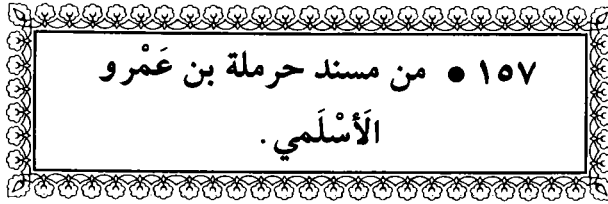 ١٥٧ • من مسند حرملة بن عَمْرو
الَأسْلَمي .